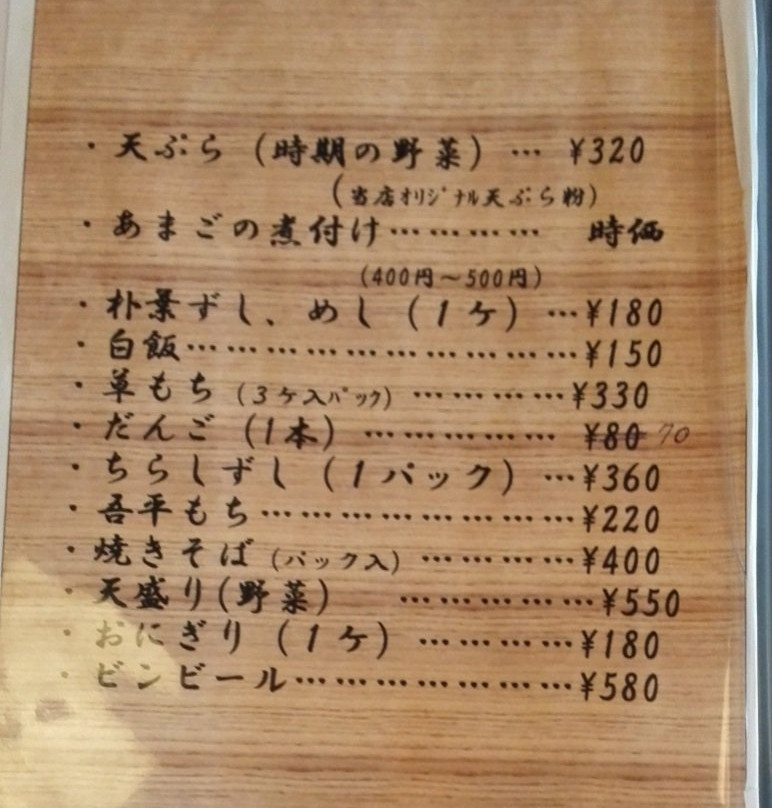 ・天ぷら（時期の野菜）… ¥320
（当店ｵﾘｼﾞﾅﾙ天ぷら粉）
・あまごの煮付け………… 時価
（400円～500円）
・朴葉ずし、めし（1ケ）…¥180
・白飯……………………………¥150
・草もち（3ケ入ﾊﾟｯｸ）…………¥330
・だんご（1本）…………… ¥80 70
・ちらしずし（1パック）…¥360
・吾平もち………………………¥220
・焼きそば（パック入）…………¥400
・天盛り（野菜） ……………¥550
・おにぎり（1ケ）…………¥180
・ビンビール……………………¥580